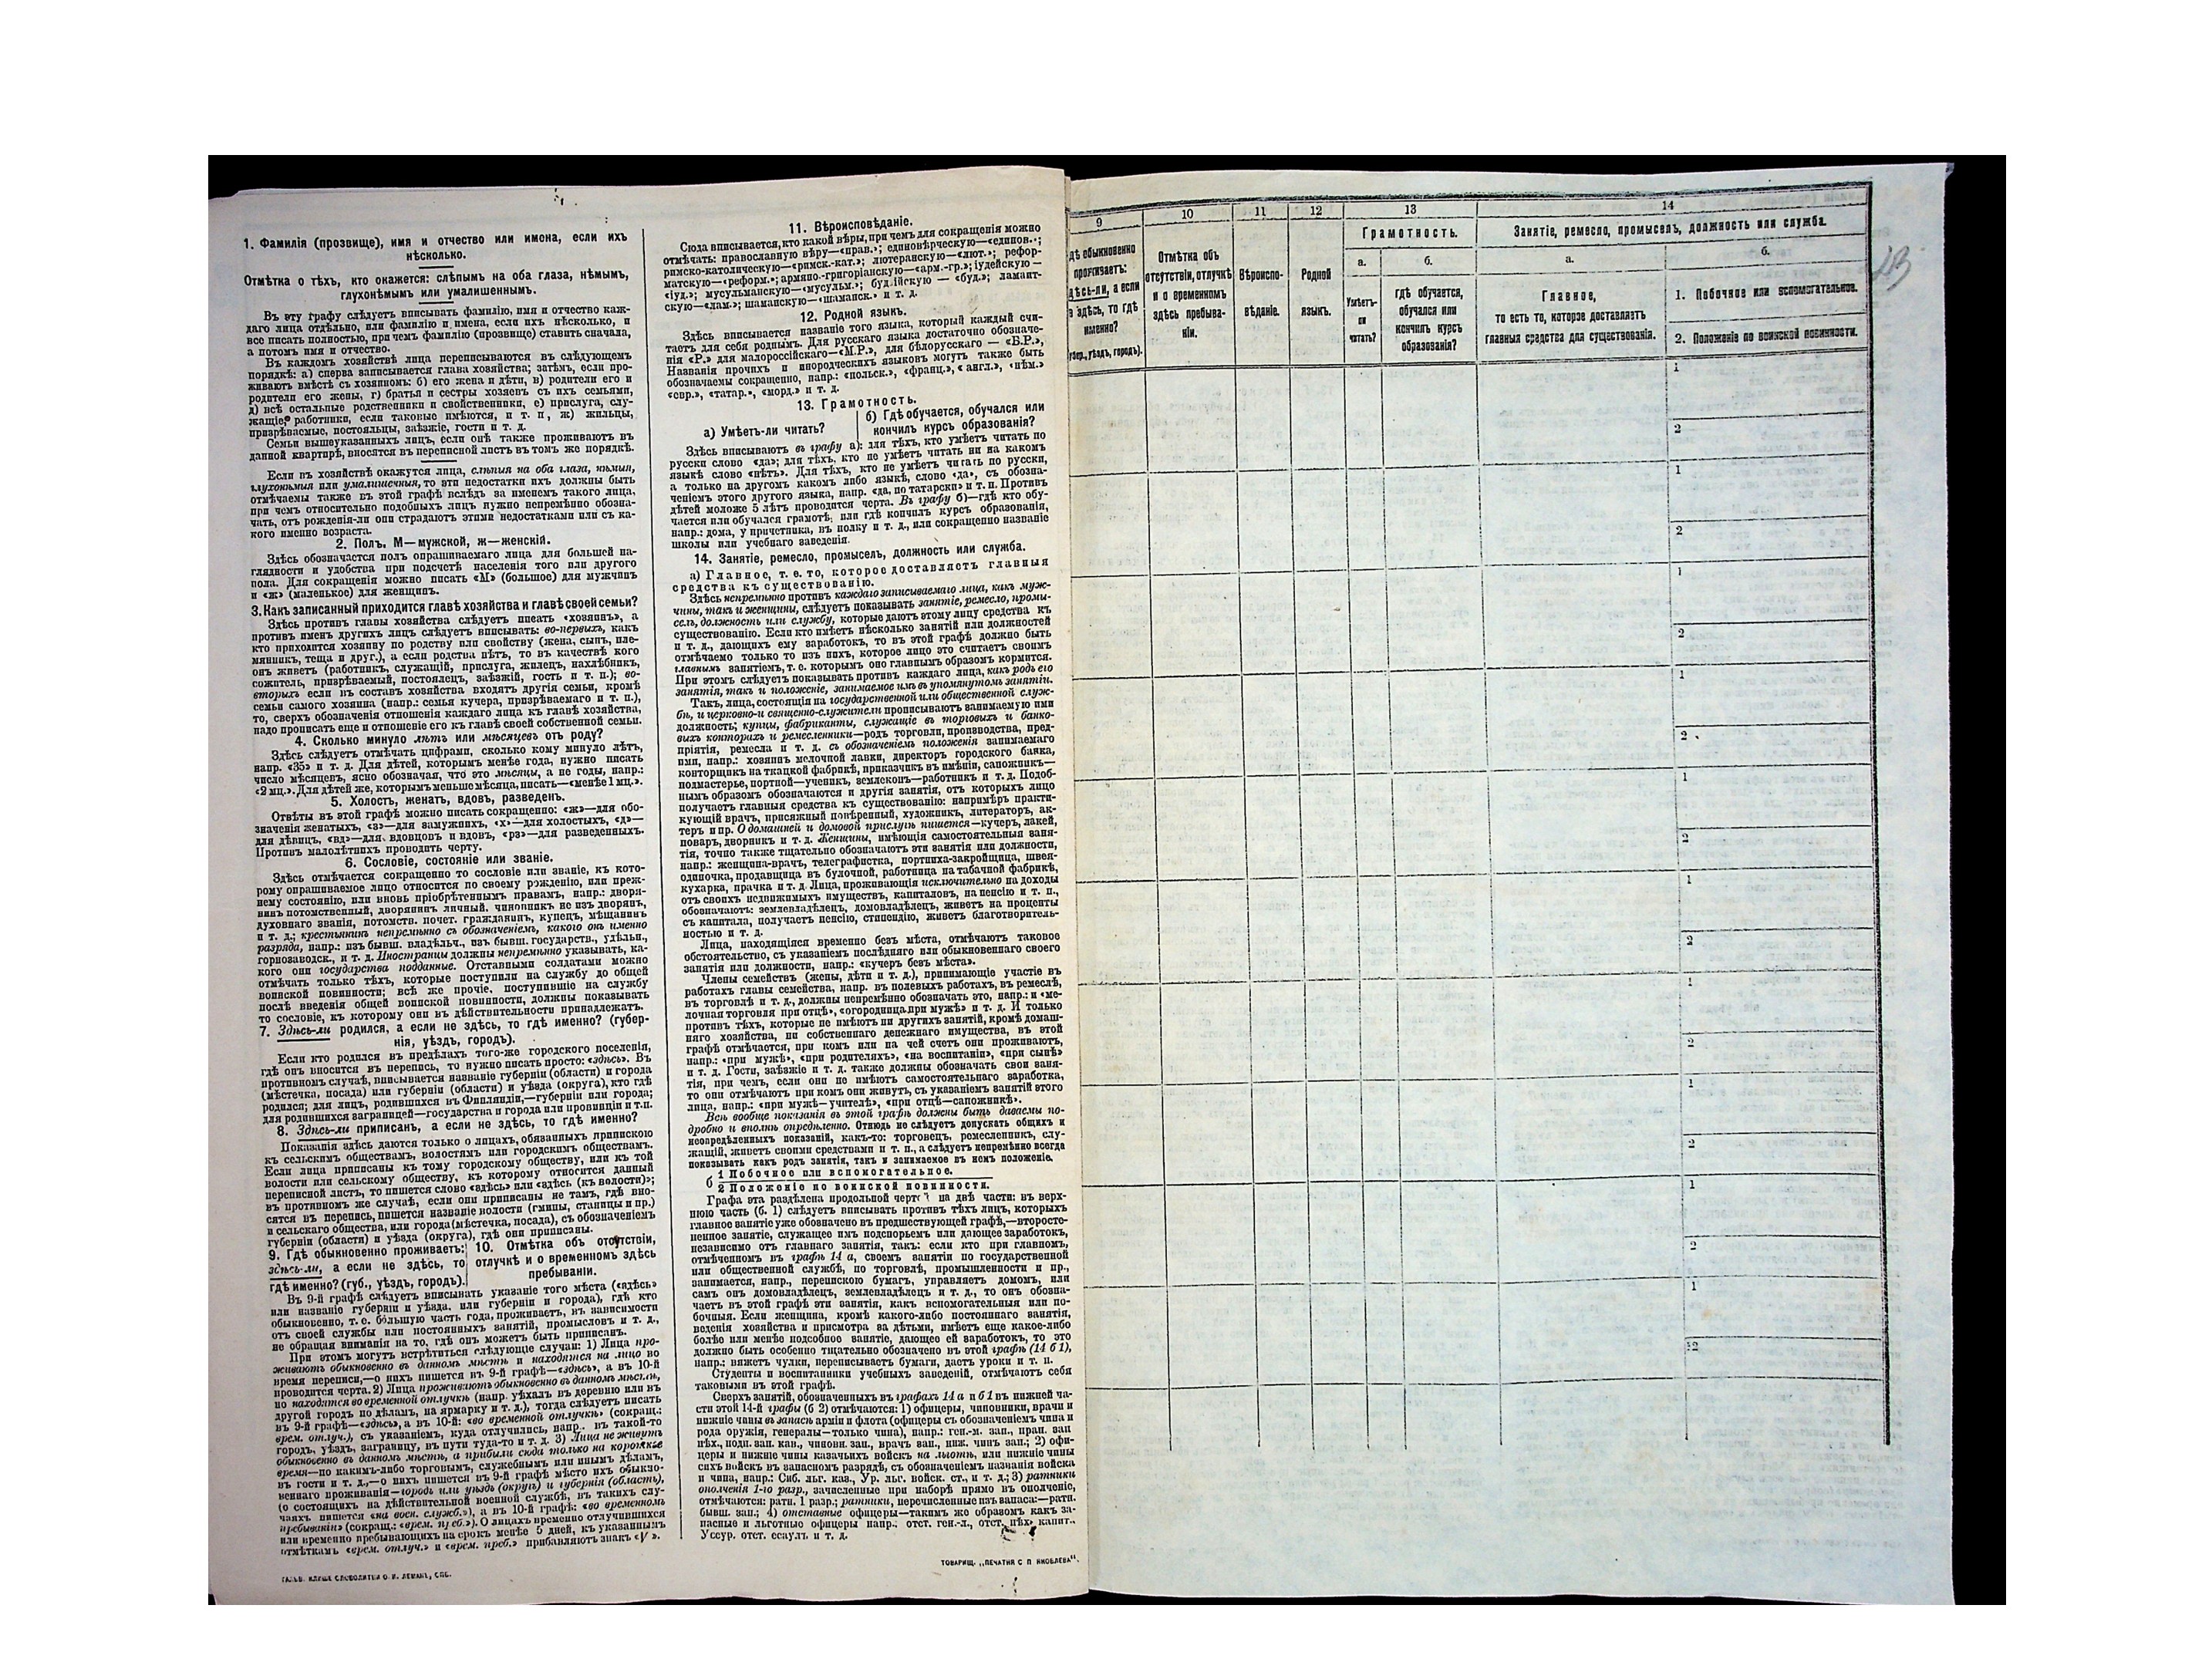 1. Фамилія (прозвище), имя и отчество или имена, если ихъ
нѣсколько.
Отмѣтка о тѣхъ, кто окажется: слѣпымъ на оба глаза, нѣмымъ,
глухонѣмымъ или умалишеннымъ.
Въ эту графу слѣдуетъ вписывать фамилію, имя и отчество каж-
даго лица отдѣльно, или фамилію и имена, если ихъ нѣсколько, и
все писать полностью, при чемъ фамилію (прозвище) ставить сначала,
а потомъ имя и отчество.
Въ каждомъ хозяйствѣ лица переписываются въ слѣдующемъ
порядкѣ: а) сперва записывается глава хозяйства; затѣмъ, если про-
живаютъ вмѣстѣ съ хозяиномъ: б) его жена и дѣти, в) родители его и
родители его жены, г) братья и сестры хозяевъ съ ихъ семьями,
д) всѣ остальные родственники и свойственники, е) прислуга, слу-
жащіе, работники, если таковые имѣются, и т. п, ж) жильцы,
призрѣваемые, постояльцы, заѣзжіе, гости и т. д.
Семьи вышеуказанныхъ лицъ, если онѣ также проживаютъ въ
данной квартирѣ, вносятся въ переписной листъ въ томъ же порядкѣ.
Если въ хозяйствѣ окажутся лица, слѣпыя на оба глаза, нѣмыя,
глухонѣмыя или умалишенныя, то эти недостатки ихъ должны быть
отмѣчаемы также въ этой графѣ вслѣдъ за именемъ такого лица,
при чемъ относительно подобныхъ лицъ нужно непремѣнно обозна-
чать, отъ рожденія-ли они страдаютъ этими недостатками или съ ка-
кого именно возраста.
2. Полъ, М—мужской, ж—женскій.
Здѣсь обозначается полъ опрашиваемаго лица для большей на-
глядности и удобства при подсчетѣ населенія того или другого
пола. Для сокращенія можно писать «М» (большое) для мужчинъ
и «ж» (маленькое) для женщинъ.
3. Какъ записанный приходится главѣ хозяйства и главѣ своей семьи?
Здѣсь противъ главы хозяйства слѣдуетъ писать «хозяинъ», а
противъ именъ другихъ лицъ слѣдуетъ вписывать: во-первыхъ, какъ
кто приходится хозяину по родству или свойству (жена, сынъ, пле-
мянникъ, теща и друг.), а если родства нѣтъ, то въ качествѣ кого
онъ живетъ (работникъ, служащій, прислуга, жилецъ, нахлѣбникъ,
сожитель, призрѣваемый, постоялецъ, заѣзжій, гость и т. п.); во-
вторыхъ если въ составъ хозяйства входятъ другія семьи, кромѣ
семьи самого хозяина (напр.: семья кучера, призрѣваемаго и т. п.),
то, сверхъ обозначенія отношенія каждаго лица къ главѣ хозяйства,
надо прописать еще и отношеніе его къ главѣ своей собственной семьи.
4. Сколько минуло лѣтъ или мѣсяцевъ отъ роду?
Здѣсь слѣдуетъ отмѣчать цифрами, сколько кому минуло лѣтъ,
напр. «35» и т. д. Для дѣтей, которымъ менѣе года, нужно писать
число мѣсяцевъ, ясно обозначая, что это мѣсяцы, а не годы, напр.:
«2 мц.». Для дѣтей же, которымъ меньше мѣсяца, писать—«менѣе 1 мц.».
5. Холостъ, женатъ, вдовъ, разведенъ.
Отвѣты въ этой графѣ можно писать сокращенно: «ж»—для обо-
значенія женатыхъ, «з»—для замужнихъ, «х»—для холостыхъ, «д»—
для дѣвицъ, «вд»—для вдовцовъ и вдовъ, «рз»—для разведенныхъ.
Противъ малолѣтнихъ проводить черту.
6. Сословіе, состояніе или званіе.
Здѣсь отмѣчается сокращенно то сословіе или званіе, къ кото-
рому опрашиваемое лицо относится по своему рожденію, или преж-
нему состоянію, или вновь пріобрѣтеннымъ правамъ, напр.: дворя-
нинъ потомственный, дворянинъ личный, чиновникъ не изъ дворянъ,
духовнаго званія, потомств. почет. гражданинъ, купецъ, мѣщанинъ
и т. д.; крестьянинъ непремѣнно съ обозначеніемъ, какого онъ именно
разряда, напр.: изъ бывш. владѣльч., изъ бывш. государств., удѣльн.,
горнозаводск., и т. д. Иностранцы должны непремѣнно указывать, ка-
кого они государства подданные. Отставными солдатами можно
отмѣчать только тѣхъ, которые поступили на службу до общей
воинской повинности; всѣ же прочіе, поступившіе на службу
послѣ введенія общей воинской повинности, должны показывать
то сословіе, къ которому они въ дѣйствительности принадлежатъ.
7. Здѣсь-ли родился, а если не здѣсь, то гдѣ именно? (губер-
нія, уѣздъ, городъ).
Если кто родился въ предѣлахъ того-же городского поселенія,
гдѣ онъ вносится въ перепись, то нужно писать просто: «здѣсь». Въ
противномъ случаѣ, вписывается названіе губерніи (области) и города
(мѣстечка, посада) или губерніи (области) и уѣзда (округа), кто гдѣ
родился; для лицъ, родившихся въ Финляндіи,—губерніи или города;
для родившихся заграницей—государства и города или провинціи и т.п.
8. Здѣсь-ли приписанъ, а если не здѣсь, то гдѣ именно?
Показанія здѣсь даются только о лицахъ, обязанныхъ припискою
къ сельскимъ обществамъ, волостямъ или городскимъ обществамъ.
Если лица приписаны къ тому городскому обществу, или къ той
волости или сельскому обществу, къ которому относится данный
переписной листъ, то пишется слово «здѣсь» или «здѣсь (къ волости)»;
въ противномъ же случаѣ, если они приписаны не тамъ, гдѣ вно-
сятся въ перепись, пишется названіе волости (гмины, станицы и пр.)
и сельскаго общества, или города (мѣстечка, посада), съ обозначеніемъ
губерніи (области) и уѣзда (округа), гдѣ они приписаны.
9. Гдѣ обыкновенно проживаетъ:
здѣсь-ли, а если не здѣсь, то
гдѣ именно? (губ., уѣздъ, городъ).
10. Отмѣтка объ отсутствіи,
отлучкѣ и о временномъ здѣсь
пребываніи.
Въ 9-й графѣ слѣдуетъ вписывать указаніе того мѣста («здѣсь»
или названіе губерніи и уѣзда, или губерніи и города), гдѣ кто
обыкновенно, т. е. большую часть года, проживаетъ, въ зависимости
отъ своей службы или постоянныхъ занятій, промысловъ и т. д.,
не обращая вниманія на то, гдѣ онъ можетъ быть приписанъ.
При этомъ могутъ встрѣтиться слѣдующіе случаи: 1) Лица про-
живаютъ обыкновенно въ данномъ мѣстѣ и находятся на лицо во
время переписи,—о нихъ пишется въ 9-й графѣ—«здѣсь», а въ 10-й
проводится черта. 2) Лица проживаютъ обыкновенно въ данномъ мѣстѣ,
но находятся во временной отлучкѣ (напр. уѣхалъ въ деревню или въ
другой городъ по дѣламъ, на ярмарку и т. д.), тогда слѣдуетъ писать
въ 9-й графѣ—«здѣсь», а въ 10-й: «во временной отлучкѣ» (сокращ.:
врем. отлуч.), съ указаніемъ, куда отлучились, напр.. въ такой-то
городъ, уѣздъ, заграницу, въ пути туда-то и т. д. 3) Лица не живутъ
обыкновенно въ данномъ мѣстѣ, а прибыли сюда только на короткое
время—по какимъ-либо торговымъ, служебнымъ или инымъ дѣламъ,
въ гости и т. д.,—о нихъ пишется въ 9-й графѣ мѣсто ихъ обыкно-
веннаго проживанія—городъ или уѣздъ (округъ) и губернія (область),
(о состоящихъ на дѣйствительной военной службѣ, въ такихъ слу-
чаяхъ пишется «на воен. служб.»), а въ 10-й графѣ: «во временномъ
пребываніи» (сокращ.: «врем. преб.»). О лицахъ временно отлучившихся
или временно пребывающихъ на срокъ менѣе 5 дней, къ указаннымъ
отмѣткамъ «врем. отлуч.» и «врем. преб.» прибавляютъ знакъ «V».
ГАЛЬВ. КЛИШЕ СЛОВОЛИТНИ О. И. ЛЕМАНЪ, СПБ.
11. Вѣроисповѣданіе.
Сюда вписывается, кто какой вѣры, при чемъ для сокращенія можно
отмѣчать: православную вѣру—«прав.»; единовѣрческую—«единов.»;
римско-католическую—«римск.-кат.»; лютеранскую—«лют.»; рефор-
матскую—«реформ.»; армяно-григоріанскую—«арм.-гр.»; іудейскую—
«іуд.»; мусульманскую—«мусульм.»; буддійскую — «буд.»; ламаит-
скую—«лам.»; шаманскую—«шаманск.» и т. д.
12. Родной языкъ.
Здѣсь вписывается названіе того языка, который каждый счи-
таетъ для себя роднымъ. Для русскаго языка достаточно обозначе-
нія «Р.» для малороссійскаго—«М.Р.», для бѣлорусскаго — «Б.Р.»,
Названія прочихъ и инородческихъ языковъ могутъ также быть
обозначаемы сокращенно, напр.: «польск.», «франц.», «англ.», «нѣм.»
«евр.», «татар.», «морд.» и т. д.
13. Грамотность.
а) Умѣетъ-ли читать?
б) Гдѣ обучается, обучался или
кончилъ курсъ образованія?
Здѣсь вписываютъ въ графу а): для тѣхъ, кто умѣетъ читать по
русски слово «да»; для тѣхъ, кто не умѣетъ читать ни на какомъ
языкѣ слово «нѣтъ». Для тѣхъ, кто не умѣетъ читать по русски,
а только на другомъ какомъ либо языкѣ, слово «да», съ обозна-
ченіемъ этого другого языка, напр. «да, по татарски» и т. п. Противъ
дѣтей моложе 5 лѣтъ проводится черта. Въ графу б)—гдѣ кто обу-
чается или обучался грамотѣ, или гдѣ кончилъ курсъ образованія,
напр.: дома, у причетника, въ полку и т. д., или сокращенно названіе
школы или учебнаго заведенія.
14. Занятіе, ремесло, промыселъ, должность или служба.
а) Главное, т. е. то, которое доставляетъ главныя
средства къ существованію.
Здѣсь непремѣнно противъ каждаго записываемаго лица, какъ муж-
чины, такъ и женщины, слѣдуетъ показывать занятіе, ремесло, промы-
селъ, должность или службу, которые даютъ этому лицу средства къ
существованію. Если кто имѣетъ нѣсколько занятій или должностей
и т. д., дающихъ ему заработокъ, то въ этой графѣ должно быть
отмѣчаемо только то изъ нихъ, которое лицо это считаетъ своимъ
главнымъ занятіемъ, т. е. которымъ оно главнымъ образомъ кормится.
При этомъ слѣдуетъ показывать противъ каждаго лица, какъ родъ его
занятія, такъ и положеніе, занимаемое имъ въ упомянутомъ занятіи.
Такъ, лица, состоящія на государственной или общественной служ-
бѣ, и церковно-и священно-служители прописываютъ занимаемую ими
должность; купцы, фабриканты, служащіе въ торговыхъ и банко-
выхъ конторахъ и ремесленники—родъ торговли, производства, пред-
пріятія, ремесла и т. д. съ обозначеніемъ положенія занимаемаго
ими, напр.: хозяинъ мелочной лавки, директоръ городского банка,
конторщикъ на ткацкой фабрикѣ, приказчикъ въ имѣніи, сапожникъ—
подмастерье, портной—ученикъ, землекопъ—работникъ и т. д. Подоб-
нымъ образомъ обозначаются и другія занятія, отъ которыхъ лицо
получаетъ главныя средства къ существованію: напримѣръ практи-
кующій врачъ, присяжный повѣренный, художникъ, литераторъ, ак-
теръ и пр. О домашней и домовой прислугѣ пишется—кучеръ, лакей,
поваръ, дворникъ и т. д. Женщины, имѣющія самостоятельныя заня-
тія, точно также тщательно обозначаютъ эти занятія или должности,
напр.: женщина-врачъ, телеграфистка, портниха-закройщица, швея-
одиночка, продавщица въ булочной, работница на табачной фабрикѣ,
кухарка, прачка и т. д. Лица, проживающія исключительно на доходы
отъ своихъ недвижимыхъ имуществъ, капиталовъ, на пенсію и т. п.,
обозначаютъ: землевладѣлецъ, домовладѣлецъ, живетъ на проценты
съ капитала, получаетъ пенсію, стипендію, живетъ благотворитель-
ностью и т. д.
Лица, находящіяся временно безъ мѣста, отмѣчаютъ таковое
обстоятельство, съ указаніемъ послѣдняго или обыкновеннаго своего
занятія или должности, напр.: «кучеръ безъ мѣста».
Члены семействъ (жены, дѣти и т. д.), принимающіе участіе въ
работахъ главы семейства, напр. въ полевыхъ работахъ, въ ремеслѣ,
въ торговлѣ и т. д., должны непремѣнно обозначать это, напр.: и «ме-
лочная торговля при отцѣ», «огородница при мужѣ» и т. д. И только
противъ тѣхъ, которые не имѣютъ ни другихъ занятій, кромѣ домаш-
няго хозяйства, ни собственнаго денежнаго имущества, въ этой
графѣ отмѣчается, при комъ или на чей счетъ они проживаютъ,
напр.: «при мужѣ», «при родителяхъ», «на воспитаніи», «при сынѣ»
и т. д. Гости, заѣзжіе и т. д. также должны обозначать свои заня-
тія, при чемъ, если они не имѣютъ самостоятельнаго заработка,
то они отмѣчаютъ при комъ они живутъ, съ указаніемъ занятій этого
лица, напр.: «при мужѣ—учителѣ», «при отцѣ—сапожникѣ».
Всѣ вообще показанія въ этой графѣ должны быть даваемы по-
дробно и вполнѣ опредѣленно. Отнюдь не слѣдуетъ допускать общихъ и
неопредѣленныхъ показаній, какъ-то: торговецъ, ремесленникъ, слу-
жащій, живетъ своими средствами и т. п., а слѣдуетъ непремѣнно всегда
показывать какъ родъ занятія, такъ и занимаемое въ немъ положеніе.
б 1 Побочное или вспомогательное.
2 Положеніе по воинской повинности.
Графа эта раздѣлена продольной чертой на двѣ части: въ верх-
нюю часть (б. 1) слѣдуетъ вписывать противъ тѣхъ лицъ, которыхъ
главное занятіе уже обозначено въ предшествующей графѣ,—второсте-
пенное занятіе, служащее имъ подспорьемъ или дающее заработокъ,
независимо отъ главнаго занятія, такъ: если кто при главномъ,
отмѣченномъ въ графѣ 14 а, своемъ занятіи по государственной
или общественной службѣ, по торговлѣ, промышленности и пр.,
занимается, напр., перепискою бумагъ, управляетъ домомъ, или
самъ онъ домовладѣлецъ, землевладѣлецъ и т. д., то онъ обозна-
чаетъ въ этой графѣ эти занятія, какъ вспомогательныя или по-
бочныя. Если женщина, кромѣ какого-либо постояннаго занятія,
веденія хозяйства и присмотра за дѣтьми, имѣетъ еще какое-либо
болѣе или менѣе подсобное занятіе, дающее ей заработокъ, то это
должно быть особенно тщательно обозначено въ этой графѣ (14 б 1),
напр.: вяжетъ чулки, переписываетъ бумаги, даетъ уроки и т. п.
Студенты и воспитанники учебныхъ заведеній, отмѣчаютъ себя
таковыми въ этой графѣ.
Сверхъ занятій, обозначенныхъ въ графахъ 14 а и б 1 въ нижней ча-
сти этой 14-й графы (б 2) отмѣчаются: 1) офицеры, чиновники, врачи и
нижніе чины въ запасѣ арміи и флота (офицеры съ обозначеніемъ чина и
рода оружія, генералы—только чина), напр.: ген.-м. зап., прап. зап
пѣх., подп. зап. кав., чиновн. зап., врачъ зап., ниж. чинъ зап.; 2) офи-
церы и нижніе чины казачьихъ войскъ на льготѣ, или нижніе чины
сихъ войскъ въ запасномъ разрядѣ, съ обозначеніемъ названія войска
и чина, напр.: Сиб. льг. каз., Ур. льг. войск. ст., и т. д.; 3) ратники
ополченія 1-го разр., зачисленные при наборѣ прямо въ ополченіе,
отмѣчаются: ратн. 1 разр.; ратники, перечисленные изъ запаса:—ратн.
бывш. зап.; 4) отставные офицеры—такимъ же образомъ какъ за-
пасные и льготные офицеры напр.: отст. ген.-л., отст. пѣх. капит.,
Уссур. отст. есаулъ и т. д.
ТОВАРИЩ. „ПЕЧАТНЯ С П ЯКОВЛЕВА".
9
10
11
12
13
14
дѣ обыкновенно
проживаетъ:
дѣсь-ли, а если
е здѣсь, то гдѣ
именно?
губер., уѣздъ, городъ).
Отмѣтка объ
отсутствіи, отлучкѣ
и о временномъ
здѣсь пребыва-
ніи.
Вѣроиспо-
вѣданіе.
Родной
языкъ.
Грамотность.
а.
Умѣетъ-
ли
читать?
б.
гдѣ обучается,
обучался или
кончилъ курсъ
образованія?
Занятіе, ремесло, промыселъ, должность или служба.
а.
Главное,
то есть то, которое доставляетъ
главныя средства для существованія.
б.
1. Побочное или вспомогательное.
2. Положеніе по воинской повинности.
1
2
1
2
1
2
1
2
1
2
1
2
1
2
1
2
1
2
1
2